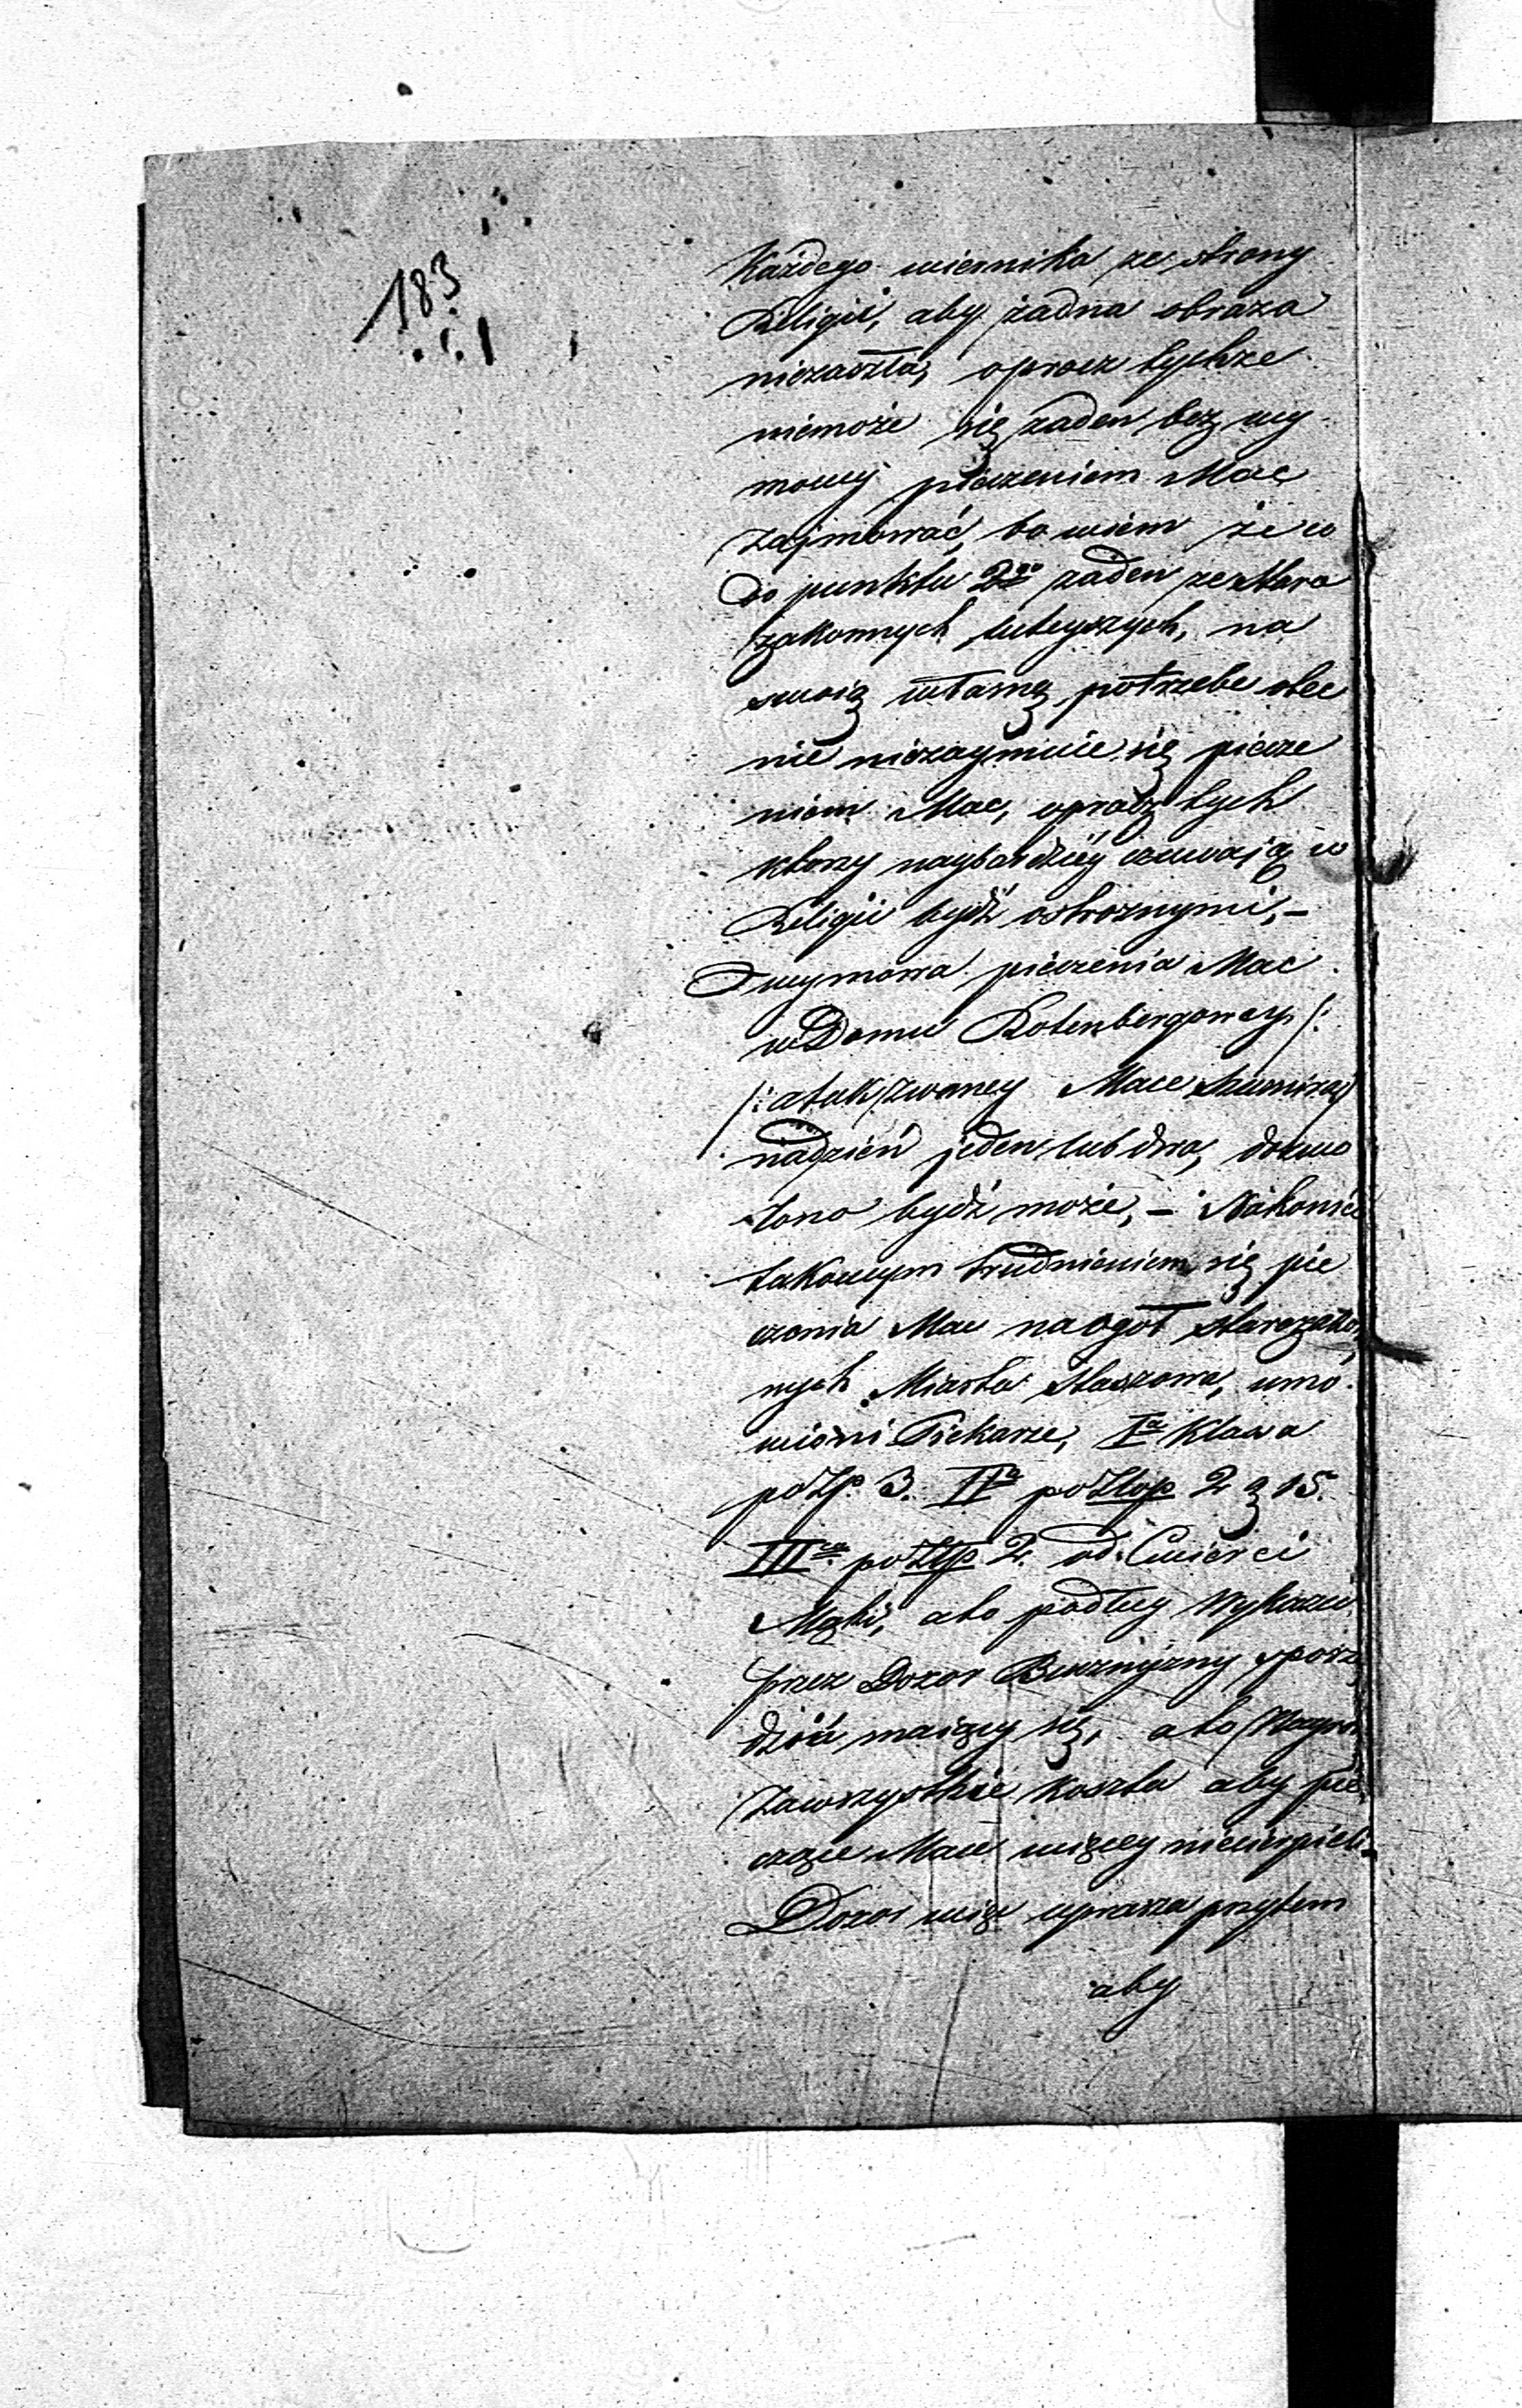 183
Każdego wiernika ze strony
Religii, aby żadna obraza
niezaszła, oprocz tychże
niemoże się żaden bez wy
mowy pieczeniem Mac
zajmować, bo wiem że co
do punktu 2go żaden ze Staro
zakonnych tuteyszych, na
swoią własną potrzebe obec
nie niezaymuie się piecze
niem Mac, oprócz tych
ktorzy naybardziéy czuwają w
Religii bydź ostroznymi, –
wymowa pieczenia Mac
w Domu Rotenbergowey /:
/: a tak zwaney Mace
nadzień jeden lub dwa, dozwo
lono bydź może, – Nakoniec
takowym trudnieniem się pie
czenia Mac na ogół Starozakon
nych Miasta Staszowa, umó
wieni Piekarze, Ia Klassa
po Zp. 3. IIa po Złop 2 g 15.
IIIcia po Złp 2. od Cwierci
Mąki, abo podług Wykazu
przez Dozor Bużnyczny sporzą
dzić maiący się, abo
zawszystkie koszta aby pie
czące Mace więcey niecierpieli
Dozor więc uprasza przytem
aby